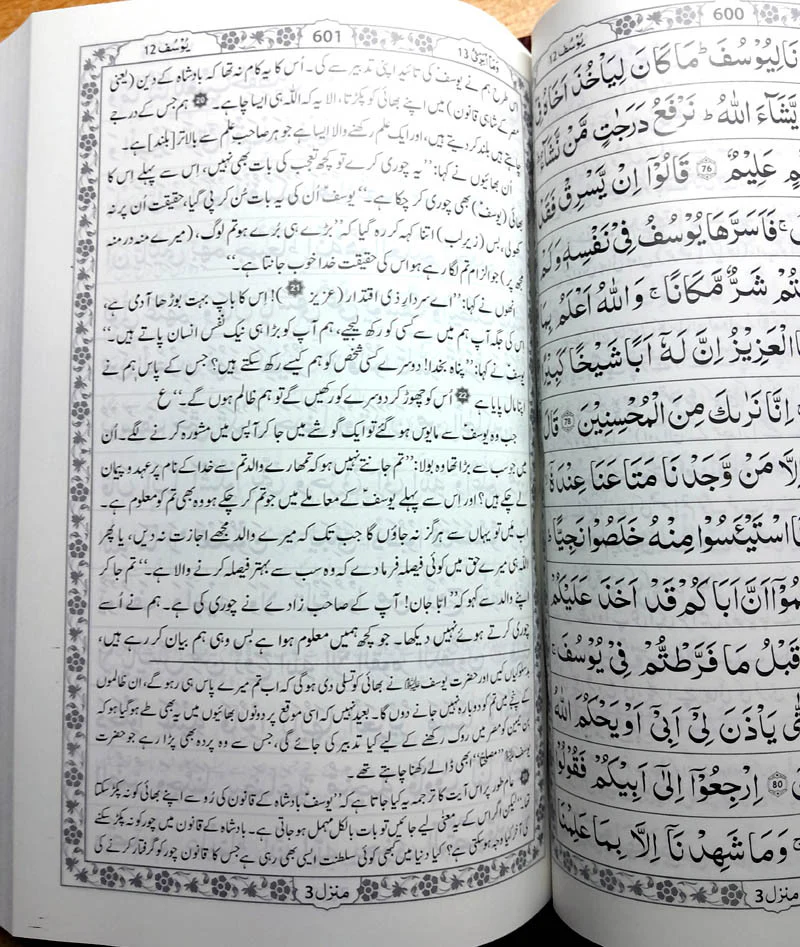 يُوْسُف 12
601
وَمَآ اُبَرِّئُ 13
اس طرح ہم نے یوسفؑ کی تائید اپنی تدبیر سے کی۔ اُس کا یہ کام نہ تھا کہ بادشاہ کے دین (یعنی
مصر کے شاہی قانون) میں اپنے بھائی کو پکڑتا، الّا یہ کہ اللہ ہی ایسا چاہے۔ ہم جس کے درجے
چاہتے ہیں بلند کر دیتے ہیں، اور ایک علم رکھنے والا ایسا ہے جو ہر صاحبِ علم سے بالاتر [بلند] ہے۔
اُن بھائیوں نے کہا: ”یہ چوری کرے تو کچھ تعجب کی بات بھی نہیں، اِس سے پہلے اِس کا
بھائی (یوسفؑ) بھی چوری کر چکا ہے۔“ یوسفؑ اُن کی یہ بات سُن کر پی گیا، حقیقت اُن پر نہ
کھولی، بس (زیرِلب) اتنا کہہ کر رہ گیا کہ ”بڑے ہی بُرے ہو تم لوگ، (میرے منہ در منہ
مجھ پر) جو الزام تم لگا رہے ہو اس کی حقیقت خدا خوب جانتا ہے۔“
انھوں نے کہا: ”اے سردارِ ذی اقتدار (عزیز 21)! اِس کا باپ بہت بوڑھا آدمی ہے،
اس کی جگہ آپ ہم میں سے کسی کو رکھ لیجیے، ہم آپ کو بڑا ہی نیک نفس انسان پاتے ہیں۔“
یوسفؑ نے کہا: ”پناہ بخدا! دوسرے کسی شخص کو ہم کیسے رکھ سکتے ہیں؟ جس کے پاس ہم نے
اپنا مال پایا ہے 22 اُس کو چھوڑ کر دوسرے کو رکھیں گے تو ہم ظالم ہوں گے۔“ ع
جب وہ یوسفؑ سے مایوس ہو گئے تو ایک گوشے میں جا کر آپس میں مشورہ کرنے لگے۔ اُن
میں جو سب سے بڑا تھا وہ بولا: ”تم جانتے نہیں ہو کہ تمھارے والد تم سے خدا کے نام پر عہد و پیمان
لے چکے ہیں؟ اور اِس سے پہلے یوسفؑ کے معاملے میں جو تم کر چکے ہو وہ بھی تم کو معلوم ہے۔
اب میں تو یہاں سے ہرگز نہ جاؤں گا جب تک کہ میرے والد مجھے اجازت نہ دیں، یا پھر
اللہ ہی میرے حق میں کوئی فیصلہ فرما دے کہ وہ سب سے بہتر فیصلہ کرنے والا ہے۔“ تم جا کر
اپنے والد سے کہو کہ ”ابّا جان! آپ کے صاحب زادے نے چوری کی ہے۔ ہم نے اُسے
چوری کرتے ہوئے نہیں دیکھا۔ جو کچھ ہمیں معلوم ہوا ہے بس وہی ہم بیان کر رہے ہیں،
بدسلوکیاں کیں اور حضرت یوسف علیہ السلام نے بھائی کو تسلی دی ہو گی کہ اب تم میرے پاس ہی رہو گے، ان ظالموں
کے پنجے میں تم کو دوبارہ نہیں جانے دوں گا۔ بعید نہیں کہ اسی موقع پر دونوں بھائیوں میں یہ بھی طے ہو گیا ہو کہ
بن یمین کو مصر میں روک رکھنے کے لیے کیا تدبیر کی جائے گی، جس سے وہ پردہ بھی پڑا رہے جو حضرت
یوسف علیہ السلام ”مصلحتاً“ ابھی ڈالے رکھنا چاہتے تھے۔
عام طور پر اس آیت کا ترجمہ یہ کیا جاتا ہے کہ ”یوسفؑ بادشاہ کے قانون کی رُو سے اپنے بھائی کو نہ پکڑ سکتا
تھا“ لیکن اگر اس کے یہ معنی لیے جائیں تو بات بالکل مہمل ہو جاتی ہے۔ بادشاہ کے قانون میں چور کو نہ پکڑ سکنے
کی آخر کیا وجہ ہو سکتی ہے؟ کیا دنیا میں کبھی کوئی سلطنت ایسی بھی رہی ہے جس کا قانون چور کو گرفتار کرنے کی
منزل 3
يُوْسُف 12
600
لِيُوْسُفَ ؕ مَا كَانَ لِيَاْخُذَ اَخَاهُ
يَّشَآءَ اللّٰهُ ؕ نَرْفَعُ دَرَجٰتٍ مَّنْ نَّشَآءُ
عَلِيْمٌ 76 قَالُوْٓا اِنْ يَّسْرِقْ فَقَدْ
فَاَسَرَّهَا يُوْسُفُ فِيْ نَفْسِهٖ وَلَمْ
شَرٌّ مَّكَانًا ۚ وَاللّٰهُ اَعْلَمُ بِمَا
الْعَزِيْزُ اِنَّ لَهٗٓ اَبًا شَيْخًا كَبِيْرًا
اِنَّا نَرٰىكَ مِنَ الْمُحْسِنِيْنَ 78 قَالَ
اِلَّا مَنْ وَّجَدْنَا مَتَاعَنَا عِنْدَهٗٓ
اسْتَيْـَٔسُوْا مِنْهُ خَلَصُوْا نَجِيًّا ؕ
اَنَّ اَبَاكُمْ قَدْ اَخَذَ عَلَيْكُمْ
قَبْلُ مَا فَرَّطْتُّمْ فِيْ يُوْسُفَ ۚ
يَاْذَنَ لِيْٓ اَبِيْٓ اَوْ يَحْكُمَ اللّٰهُ
80 اِرْجِعُوْٓا اِلٰٓى اَبِيْكُمْ فَقُوْلُوْا
وَمَا شَهِدْنَآ اِلَّا بِمَا عَلِمْنَا
منزل 3